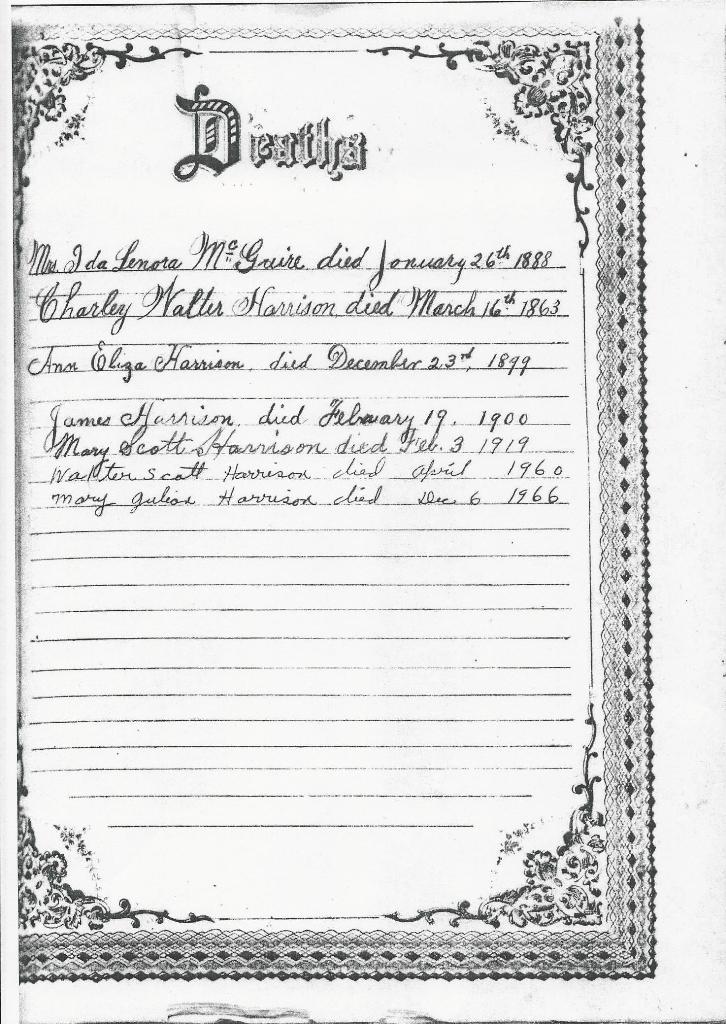 Deaths
Mrs. Ida Lenora McGuire died January 26th 1888
Charley Walter Harrison, died March 16th 1863
Ann Eliza Harrison, died December 23rd, 1899
James Harrison, died February 19, 1900
Mary Scott Harrison died Feb. 3 1919
Walter Scott Harrison died April 1960
Mary Julian Harrison died Dec. 6 1966